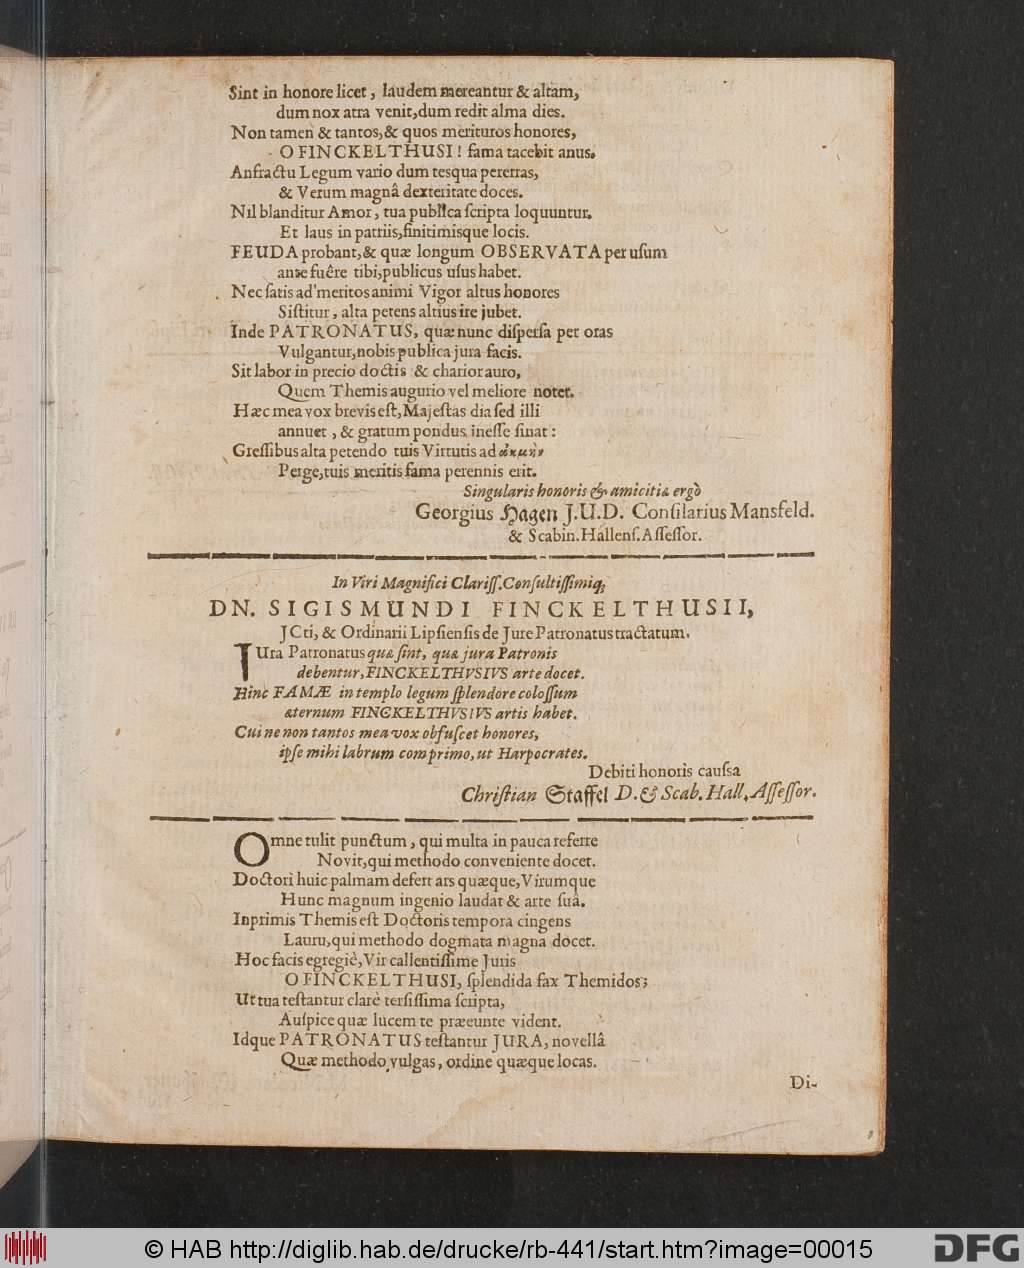 Sint in honore licet, laudem mereantur & altam,
dum nox atra venit, dum redit alma dies.
Non tamen & tantos, & quos merituros honores,
O FINCKELTHUSI! fama tacebit anus.
Anfractu Legum vario dum tesqua pererras,
& Verum magnâ dexteritate doces.
Nil blanditur Amor, tua publica ſcripta loquuntur.
Et laus in patriis, finitimisque locis.
FEUDA probant, & quæ longum OBSERVATA per uſum
ante fuêre tibi, publicus uſus habet.
Nec ſatis ad meritos animi Vigor altus honores
Siſtitur, alta petens altius ire jubet.
Inde PATRONATUS, quæ nunc diſperſa per oras
Vulgantur, nobis publica jura facis.
Sit labor in precio doctis & charior auro,
Quem Themis augurio vel meliore notet.
Hæc mea vox brevis eſt, Majeſtas dia ſed illi
annuet, & gratum pondus ineſſe ſinat:
Greſſibus alta petendo tuis Virtutis ad ἀκμὴν
Perge, tuis meritis fama perennis erit.
Singularis honoris & amicitiæ ergò
Georgius Hagen J.U.D. Conſiliarius Mansfeld.
& Scabin. Hallenſ. Aſſeſſor.
In Viri Magnifici Clariſſ. Conſultiſſimiq;
DN. SIGISMUNDI FINCKELTHUSII,
JCti, & Ordinarii Lipſienſis de Jure Patronatus tractatum.
IUra Patronatus quæ ſint, quæ jura Patronis
debentur, FINCKELTHVSIVS arte docet.
Hinc FAMÆ in templo legum ſplendore coloſſum
æternum FINCKELTHVSIVS artis habet.
Cui ne non tantos mea vox obfuſcet honores,
ipſe mihi labrum comprimo, ut Harpocrates.
Debiti honoris cauſsa
Chriſtian Staffel D. & Scab. Hall. Aſſeſſor.
Omne tulit punctum, qui multa in pauca referre
Novit, qui methodo conveniente docet.
Doctori huic palmam defert ars quæque, Virumque
Hunc magnum ingenio laudat & arte ſuâ.
Inprimis Themis eſt Doctoris tempora cingens
Lauru, qui methodo dogmata magna docet.
Hoc facis egregiè, Vir callentiſſime Juris
O FINCKELTHUSI, ſplendida fax Themidos;
Ut tua teſtantur clarè terſiſſima ſcripta,
Auſpice quæ lucem te præeunte vident.
Idque PATRONATUS teſtantur JURA, novellâ
Quæ methodo vulgas, ordine quæque locas.
Di-
© HAB http://diglib.hab.de/drucke/rb-441/start.htm?image=00015
DFG